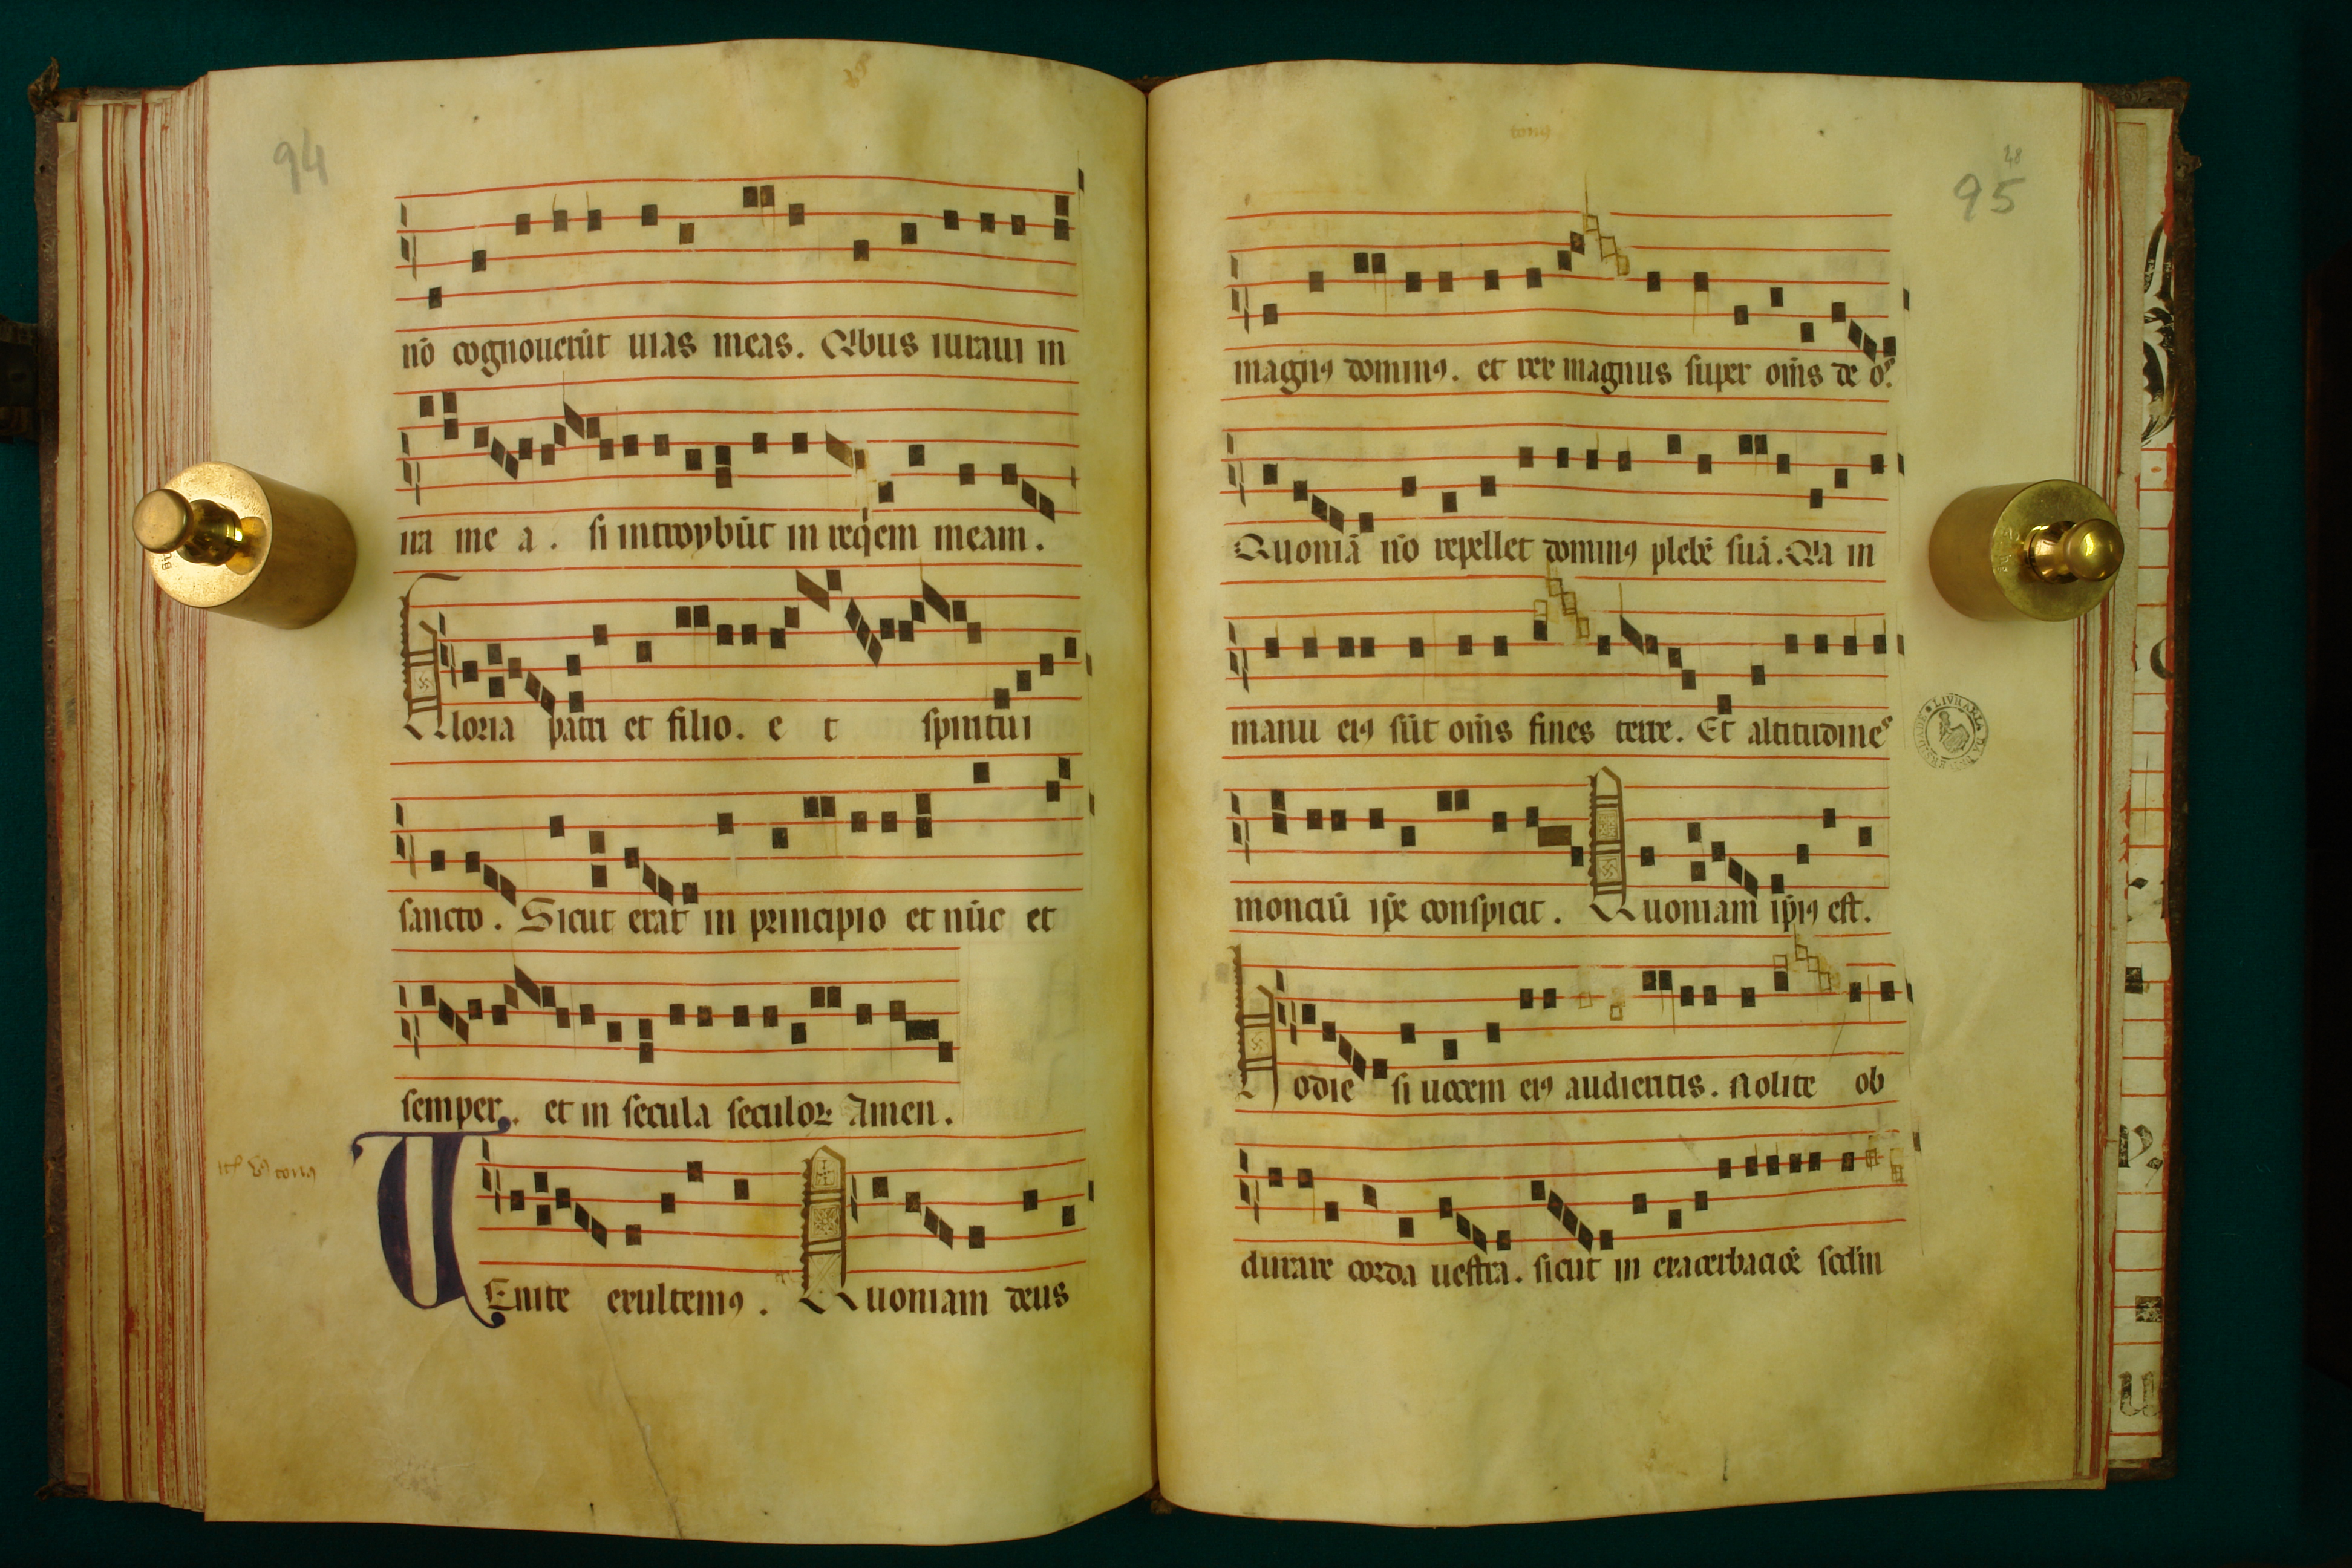 94
nō cognouerūt uias meas. Qibus iuraui in
ira me a. si introybūt in reqiem meam.
Gloria patri et filio. e t spiritui
sancto. Sicut erat in principio et nūc et
semper. et in secula seculoꝝ Amen.
VEnite exultemꝰ. Quoniam deus
tonꝰ
48
95
magnꝰ dominꝰ. et rex magnus super om̄s de os.
Quoniā nō repellet dominꝰ plebē suā. Qia in
manu eiꝰ sūt om̄s fines terre. Et altitudines
monciū ip̄e conspicit. Quoniam ip̄iꝰ est.
Hodie si uocem eiꝰ audieritis. Nolite ob
durare corda uestra. sicut in exacerbaciōe scd̄m